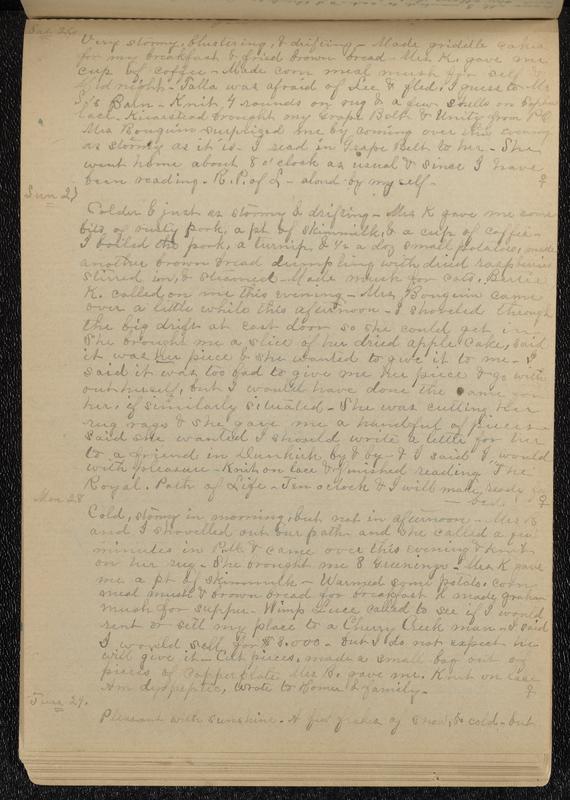 Sat 26
Very stormy, blustering, & drifting - Made griddle cakes
for my breakfast & fried brown bread - Mrs. K. gave me
cup of coffee - Made corn meal mush for self &
old night - Talla was afraid of Lee & fled, I guess to Mr
barn - Knit 4 rounds on rug & a few shells on
lace - brought my Grape Belt & Unity from P.O.
Mrs Bouquin surprized me by coming over this evening
as stormy as it is - I read in Grape Belt to her - She
went home about 8 o'clock as usual & since I have
been reading - R. P. of L - aloud by myself -
Sun 27
Colder & just as stormy & drifting - Mrs K gave me some
bits of rusty pork, a pt of skimmilk, & a cup of coffee -
I boiled the pork, a turnip, & 1/2 a doz small potatoes, made
another brown bread dumpling with dried raspberries
stirred in, & steamed - Made mush for cats. Bertie
K. called on me this evening - Mrs. Bouquin came
over a little while this afternoon - I shoveled through
the big drift at east door so she could get in -
She brought me a slice of her dried apple cake, said
it was her piece & she wanted to give it to me - I
said it was too bad to give me her piece & go with
out herself, but I would have done the same
her, if similarly situated - She was cutting her
rug rags & she gave me a handful of pieces -
said she wanted I should write a letter for her
to a friend in Dunkirk by & by - & I said I would
with pleasure - Knit on lace & finished reading "The
Royal Path of Life - Ten oclock & I will make ready
bed
Mon 28
Cold, stormy in morning, but not in afternoon - Mrs B
and I shovelled out our path and she called a few
minutes in P.M. & came over this evening & knit
on her rug - She brought me 8 Greenings - Mrs K gave
me a pt of skimmilk - Warmed some potato, corn
meal mush & brown bread for breakfast & made graham
mush for supper - Wimp Luce called to see if I would
rent or sell my place to a Cherry Creek man - I said
I would sell for $3.000 - but I do not expect he
will give it - Cut pieces, made a small bag out of
pieces of Copperplate Mrs B. gave me. Knit on lace
Am dyspeptic, wrote to Homer & family -
Tues 29.
Pleasant with sunshine - A few flakes of snow, & cold - but